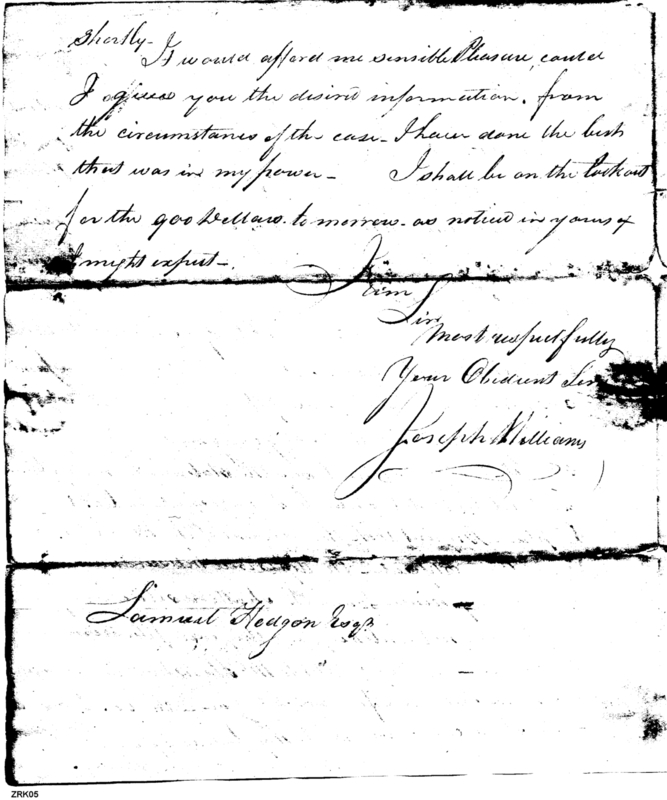 Shortly -
It would afford me sensible Pleasure, could
I give you the desired information. from
the circumstances of the case - I have done the best
that was in my power - I shall be on the look out
for the 900 Dollars tomorrow - as noticed in yours of
I might expect -
I am
Sir
Most respectfully
Your Obedient
Joseph Williams
Samuel Hodgdon Esqr
ZRK05